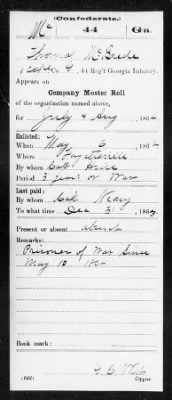 (Confederate.)
Mc 44 Ga.
Thomas McBride
44 Reg't Georgia Infantry.
Appears on
Company Muster Roll
of the organization named above,
for July & Aug, 186
Enlisted:
When May 6, 186
Where Fayetteville
By whom Capt
Period 3 years or War
Last paid:
By whom Capt Neary
To what time Dec 31, 186
Present or absent absent
Remarks:
Prisoner of War Since
May 10
Book mark:
(642) Copyist.